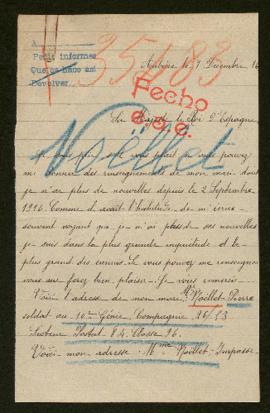 A
Pedir informes
Que se hace así
Devolver
35483
Fecho
Noëllet
le 7 Décembre 16
Sa Majesté le Roi d'Espagne
si vous pouvez
me donner des renseignements de mon mari dont
je n'ai plus de nouvelles depuis le 2 Septembre
1916. Comme il avait l'habitude de m'écrire
souvent voyant que je n'ai plus de ses nouvelles
je suis dans la plus grande inquiétude et la
plus grand des ennuis. Si vous pouvez me renseigner
vous me ferez bien plaisir. Je vous remercie
Voici l'adresse de mon mari Mr Noëllet Pierre
soldat au 10me Génie Compagnie 26/53
Secteur Postal 84 Classe 96.
Voici mon adresse Mme Noëllet Impasse